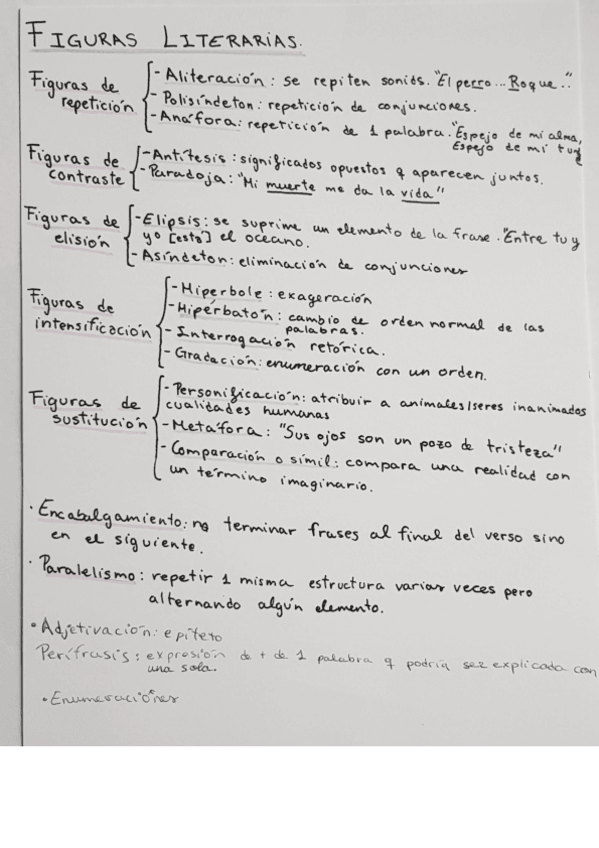 FIGURAS LITERARIAS.
Figuras de repetición
- Aliteración: se repiten sonids. "El perro... Roque.."
- Polisíndeton: repetición de conjunciones.
- Anáfora: repetición de 1 palabra. "Espejo de mi alma,
Espejo de mi
Figuras de contraste
- Antítesis: significados opuestos q aparecen juntos.
- Paradoja: "Mi muerte me da la vida"
Figuras de elisión
- Elipsis: se suprime un elemento de la frase. "Entre tu y
yo [esta] el oceano.
- Asíndeton: eliminación de conjunciones
Figuras de intensificación
- Hiperbole: exageración
- Hipérbaton: cambio de orden normal de las
palabras.
- Interrogación retórica.
- Gradación: enumeración con un orden.
Figuras de sustitución
- Personificación: atribuir a animales/seres inanimados
cualidades humanas
- Metáfora: "Sus ojos son un pozo de tristeza"
- Comparación o símil: compara una realidad con
un término imaginario.
· Encabalgamiento: no terminar frases al final del verso sino
en el siguiente.
· Paralelismo: repetir 1 misma estructura varias veces pero
alternando algún elemento.
• Adjetivación: epíteto
Perífrasis: expresión de + de 1 palabra q podría ser explicada con
una sola.
• Enumeraciones